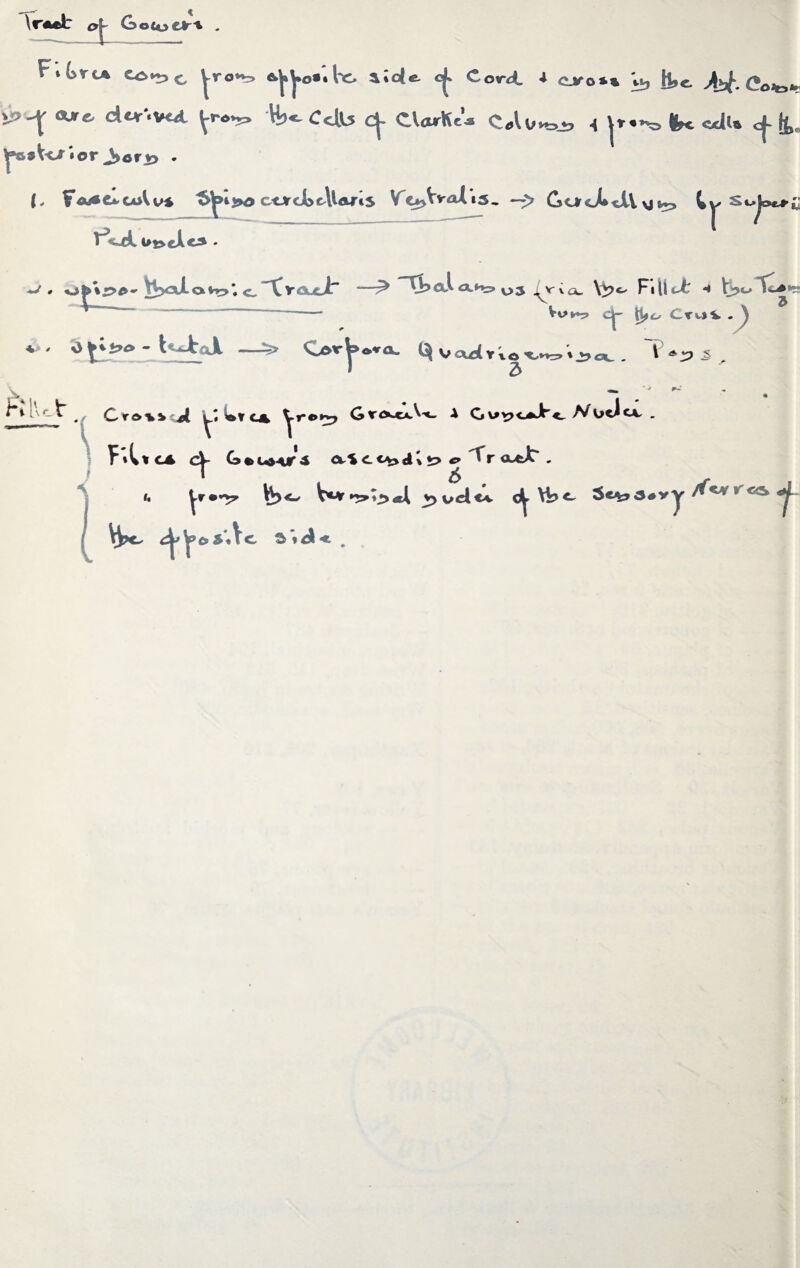 Tract of Gowers .
Fibres come from opposite side of Cord & cross in the Ant. Com
& are derived from the Cells of Clarke's Column & from the cells of the
posterior horn .
1. Fasciculus Spino cerebellaris Ventralis. → Cerebellum by Superior
Peduncles .
2. Spino-thalamic Tract → Thalamus (via the Fillet & the
of the Crus . )
3. Spino - tectal → Corpora Quadrigemina . Pons .
Fillet . Crossed fibres from Gracile & Cuneate Nuclei .
Fibres of Gowers ascending Tract .
" from the terminal nuclei of the Sensory Nerves of
the opposite side .
WELLCOME
LIBRARY
INSTITUTE